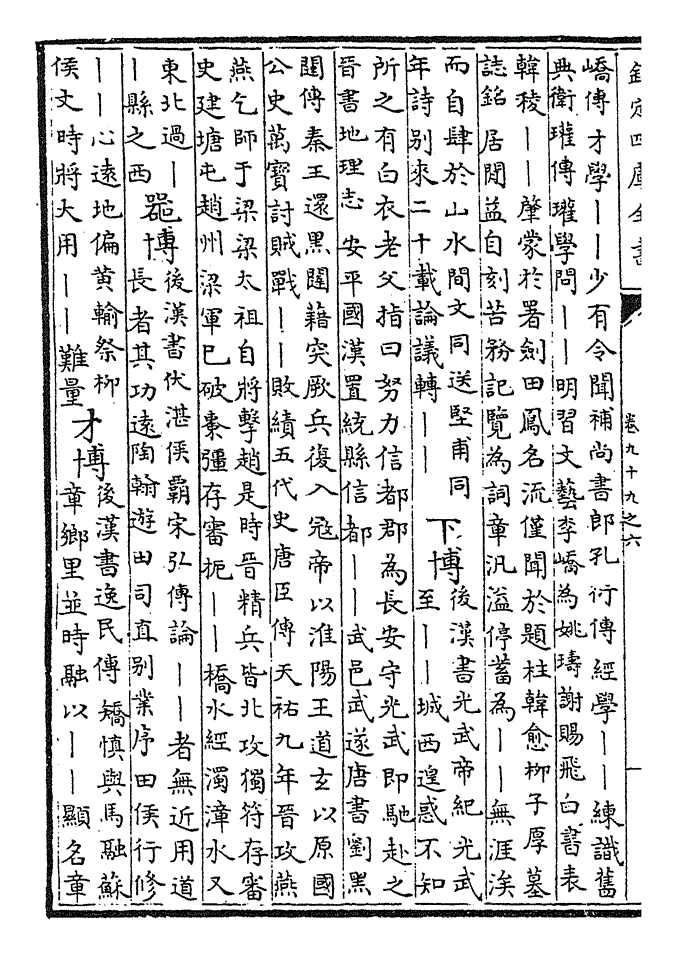 欽定四庫全書
卷九十九之六
嶠傳才學丨丨少有令聞補尚書郎孔衍傳經學丨丨練識舊
典衛瓘傳瓘學問丨丨明習文藝李嶠為姚璹謝賜飛白書表
韓稜丨丨肇蒙於署劍田鳳名流僅聞於題柱韓愈柳子厚墓
誌銘居閒益自刻苦務記覽為詞章汎溢停蓄為丨丨無涯涘
而自肆於山水間文同送堅甫同
年詩别來二十載論議轉丨丨
下博
後漢書光武帝紀光武
至丨丨城西遑惑不知
所之有白衣老父指曰努力信都郡為長安守光武即馳赴之
晉書地理志 安平國漢置統縣信都丨丨武邑武遂唐書劉黑
闥傳秦王還黑闥藉突厥兵復入冦帝以淮陽王道玄以原國
公史萬寶討賊戰丨丨敗績五代史唐臣傳天祐九年晉攻燕
燕乞師于梁梁太祖自將擊趙是時晉精兵皆北攻獨符存審
史建塘屯趙州梁軍已破棗彊存審扼丨丨橋水經濁漳水又
東北過丨
丨縣之西
噐博
後漢書伏湛侯霸宋弘傳論丨丨者無近用道
長者其功遠陶翰遊田司直别業序田侯行修
丨丨心遠地偏黄輸祭柳
侯文時將大用丨丨難量
才博
後漢書逸民傳 矯慎與馬融蘇
章鄉里並時融以丨丨顯名章